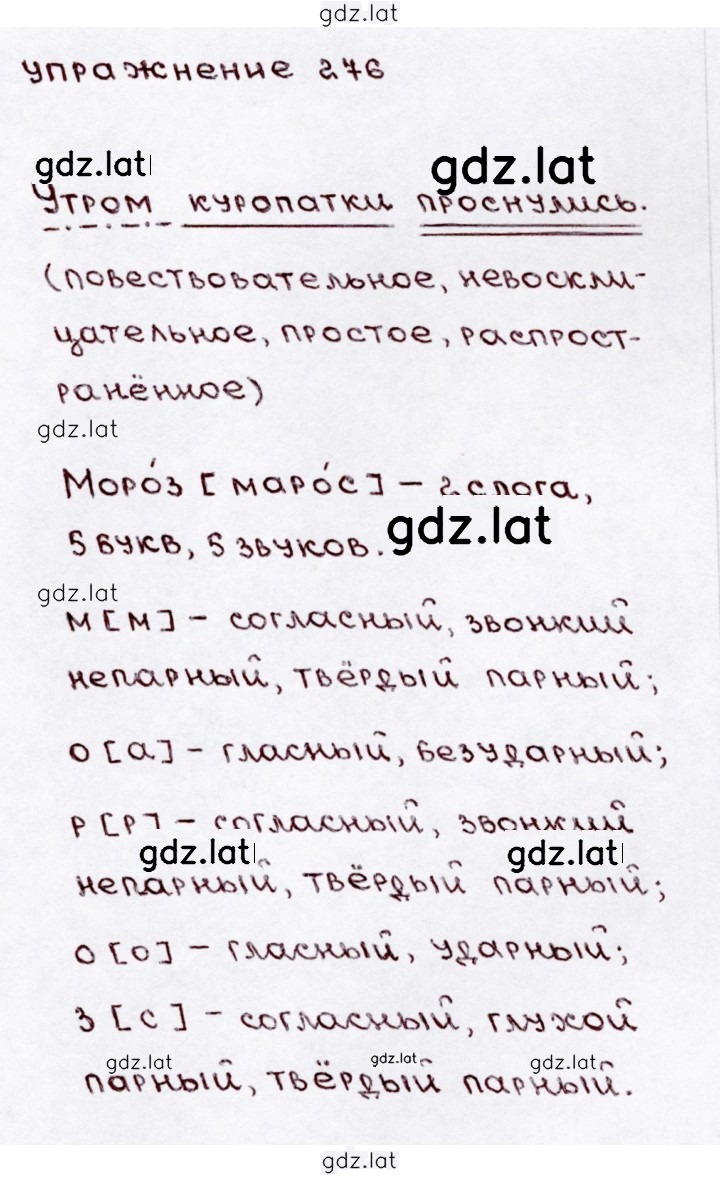 gdz.lat
упражнение 276
gdz.lat gdz.lat
Утром куропатки проснулись.
(повествовательное, невоскли-
цательное, простое, распрост-
ранённое)
gdz.lat
Моро́з [маро́с] – 2 слога,
5 букв, 5 звуков. gdz.lat
gdz.lat
м [м] – согласный, звонкий
непарный, твёрдый парный;
о [а] – гласный, безударный;
р [р] – согласный, звонкий
gdz.lat gdz.lat
непарный, твёрдый парный;
о [о] – гласный, ударный;
з [с] – согласный, глухой
gdz.lat gdz.lat gdz.lat
парный, твёрдый парный.
gdz.lat